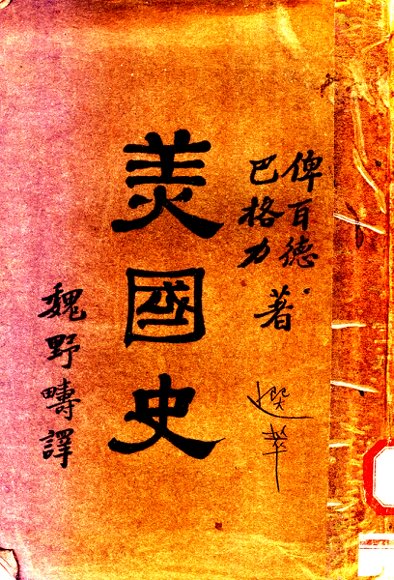 俾百德
巴格力
著
美國史
魏野疇譯